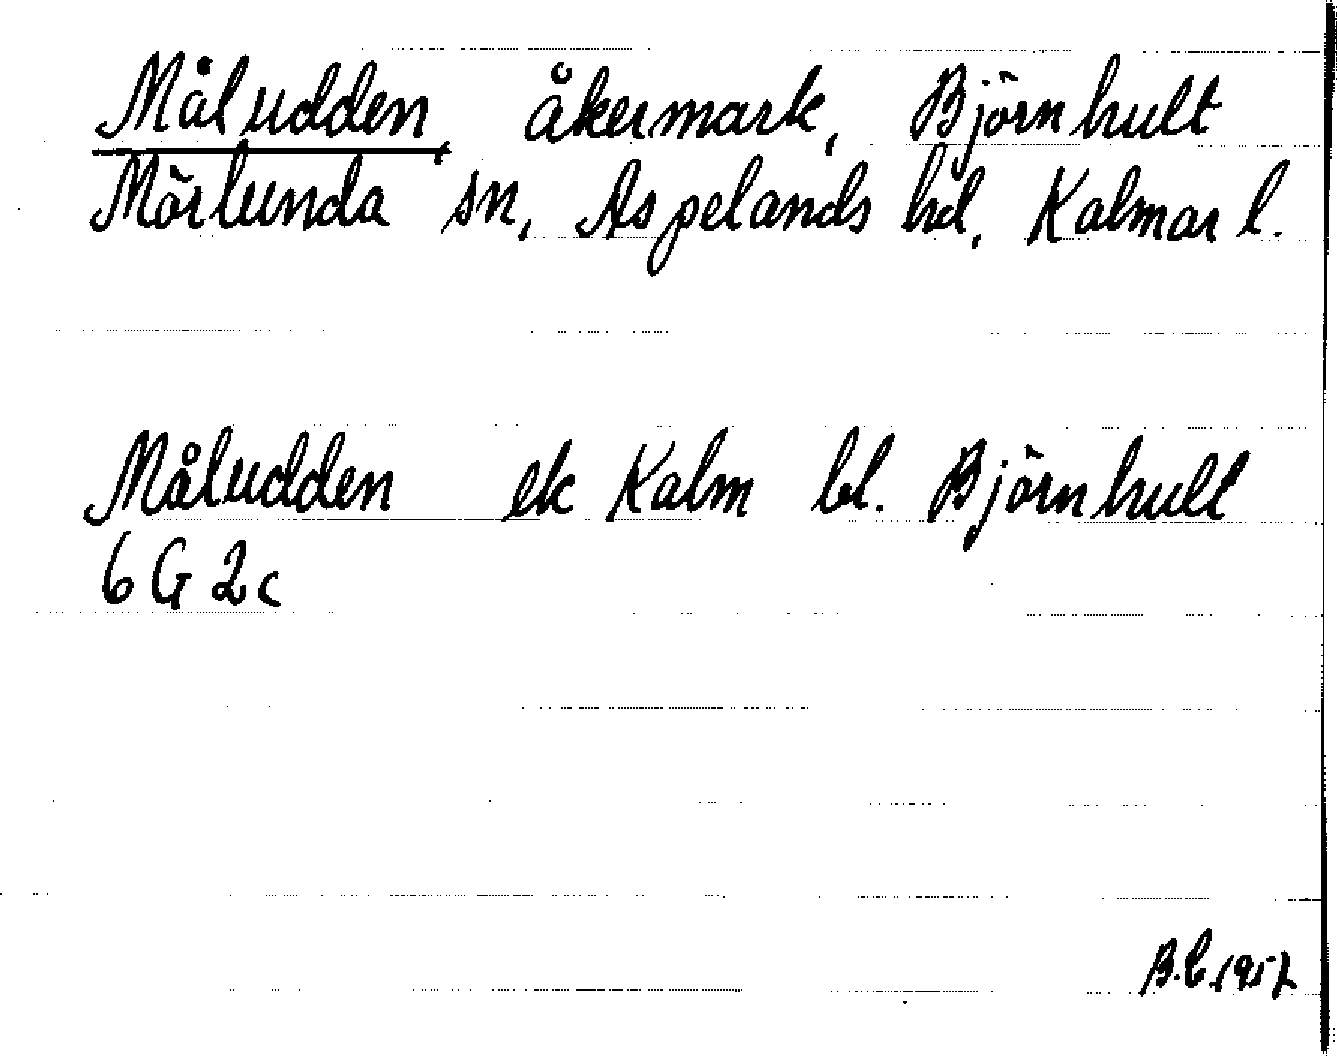 Måludden, åkermark, Björnhult
Mörlunda sn, Aspelands hd, Kalmar l.
Måludden ek Kalm bl. Björnhult
6 G 2c
1957